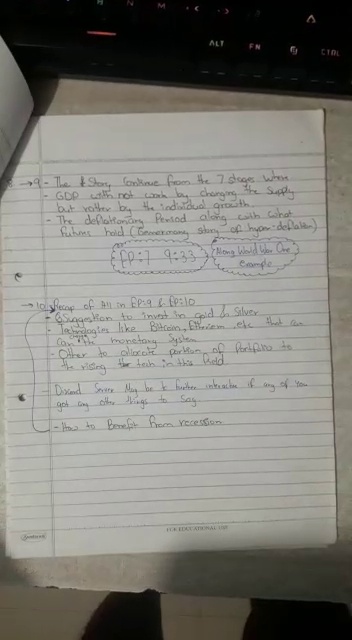 ALT FN CTRL
→ 9 - The $ Story Continue from the 7 stages where
- GDP will not work by changing the supply
but rather by the individual growth.
- The deflationary Period along with what
future hold (Germany story of hyper-deflation)
EP:7 9:33
Along World War One
example
→ 10 - Recap of All in EP:9 & EP:10
- Suggestion to invest in gold & Silver
- Technologies like Bitcoin, Etherium, etc that can
the monetary system
- Other to allocate portion of Portfolio to
the rising tech in this field
- Discord Server May be to further interactive if any of you
got any other things to Say
- How to Benefit from recession
FOR EDUCATIONAL USE